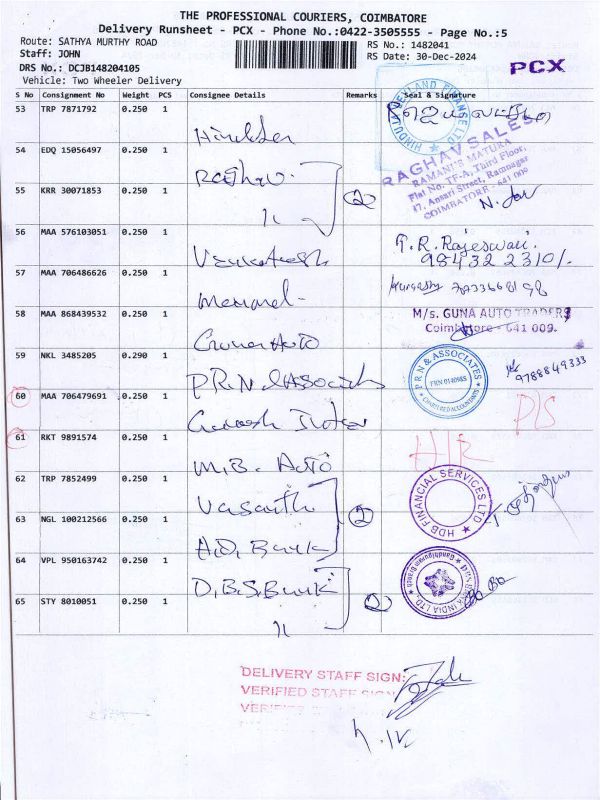 THE PROFESSIONAL COURIERS, COIMBATORE
Delivery Runsheet - PCX - Phone No.:0422-3505555 - Page No.:5
Route: SATHYA MURTHY ROAD RS No.: 1482041
Staff: JOHN RS Date: 30-Dec-2024
DRS No.: DCJB148204105 PCX
Vehicle: Two Wheeler Delivery
S No Consignment No Weight PCS Consignee Details Remarks Seal & Signature
53 TRP 7871792 0.250 1
HINDUJA LEYLAND FINANCE LTD
54 EDQ 15056497 0.250 1
RAGHAV SALES
RAMANI'S MATURA
Flat No. TF-A, Third Floor,
47, Ansari Street, Ramnagar
COIMBATORE - 641 009
55 KRR 30071853 0.250 1
11 2
56 MAA 576103051 0.250 1
Venkatesh T.R. Rajeswari.
98432 2310/.
57 MAA 706486626 0.250 1
58 MAA 868439532 0.250 1
Guna Auto M/s. GUNA AUTO TRADERS
Coimbatore - 641 009.
59 NKL 3485205 0.290 1
P.R.N & Associates P.R.N & ASSOCIATES
CHARTERED ACCOUNTANTS
9788849333
60 MAA 706479691 0.250 1
61 RKT 9891574 0.250 1
M.B. Auto
62 TRP 7852499 0.250 1
Vasanth HDB FINANCIAL SERVICES LTD
63 NGL 100212566 0.250 1
2
64 VPL 950163742 0.250 1
D.B.S. Bank BANK INDIA LTD.
65 STY 8010051 0.250 1
11 2
DELIVERY STAFF SIGN:
VERIFIED STAFF SIGN